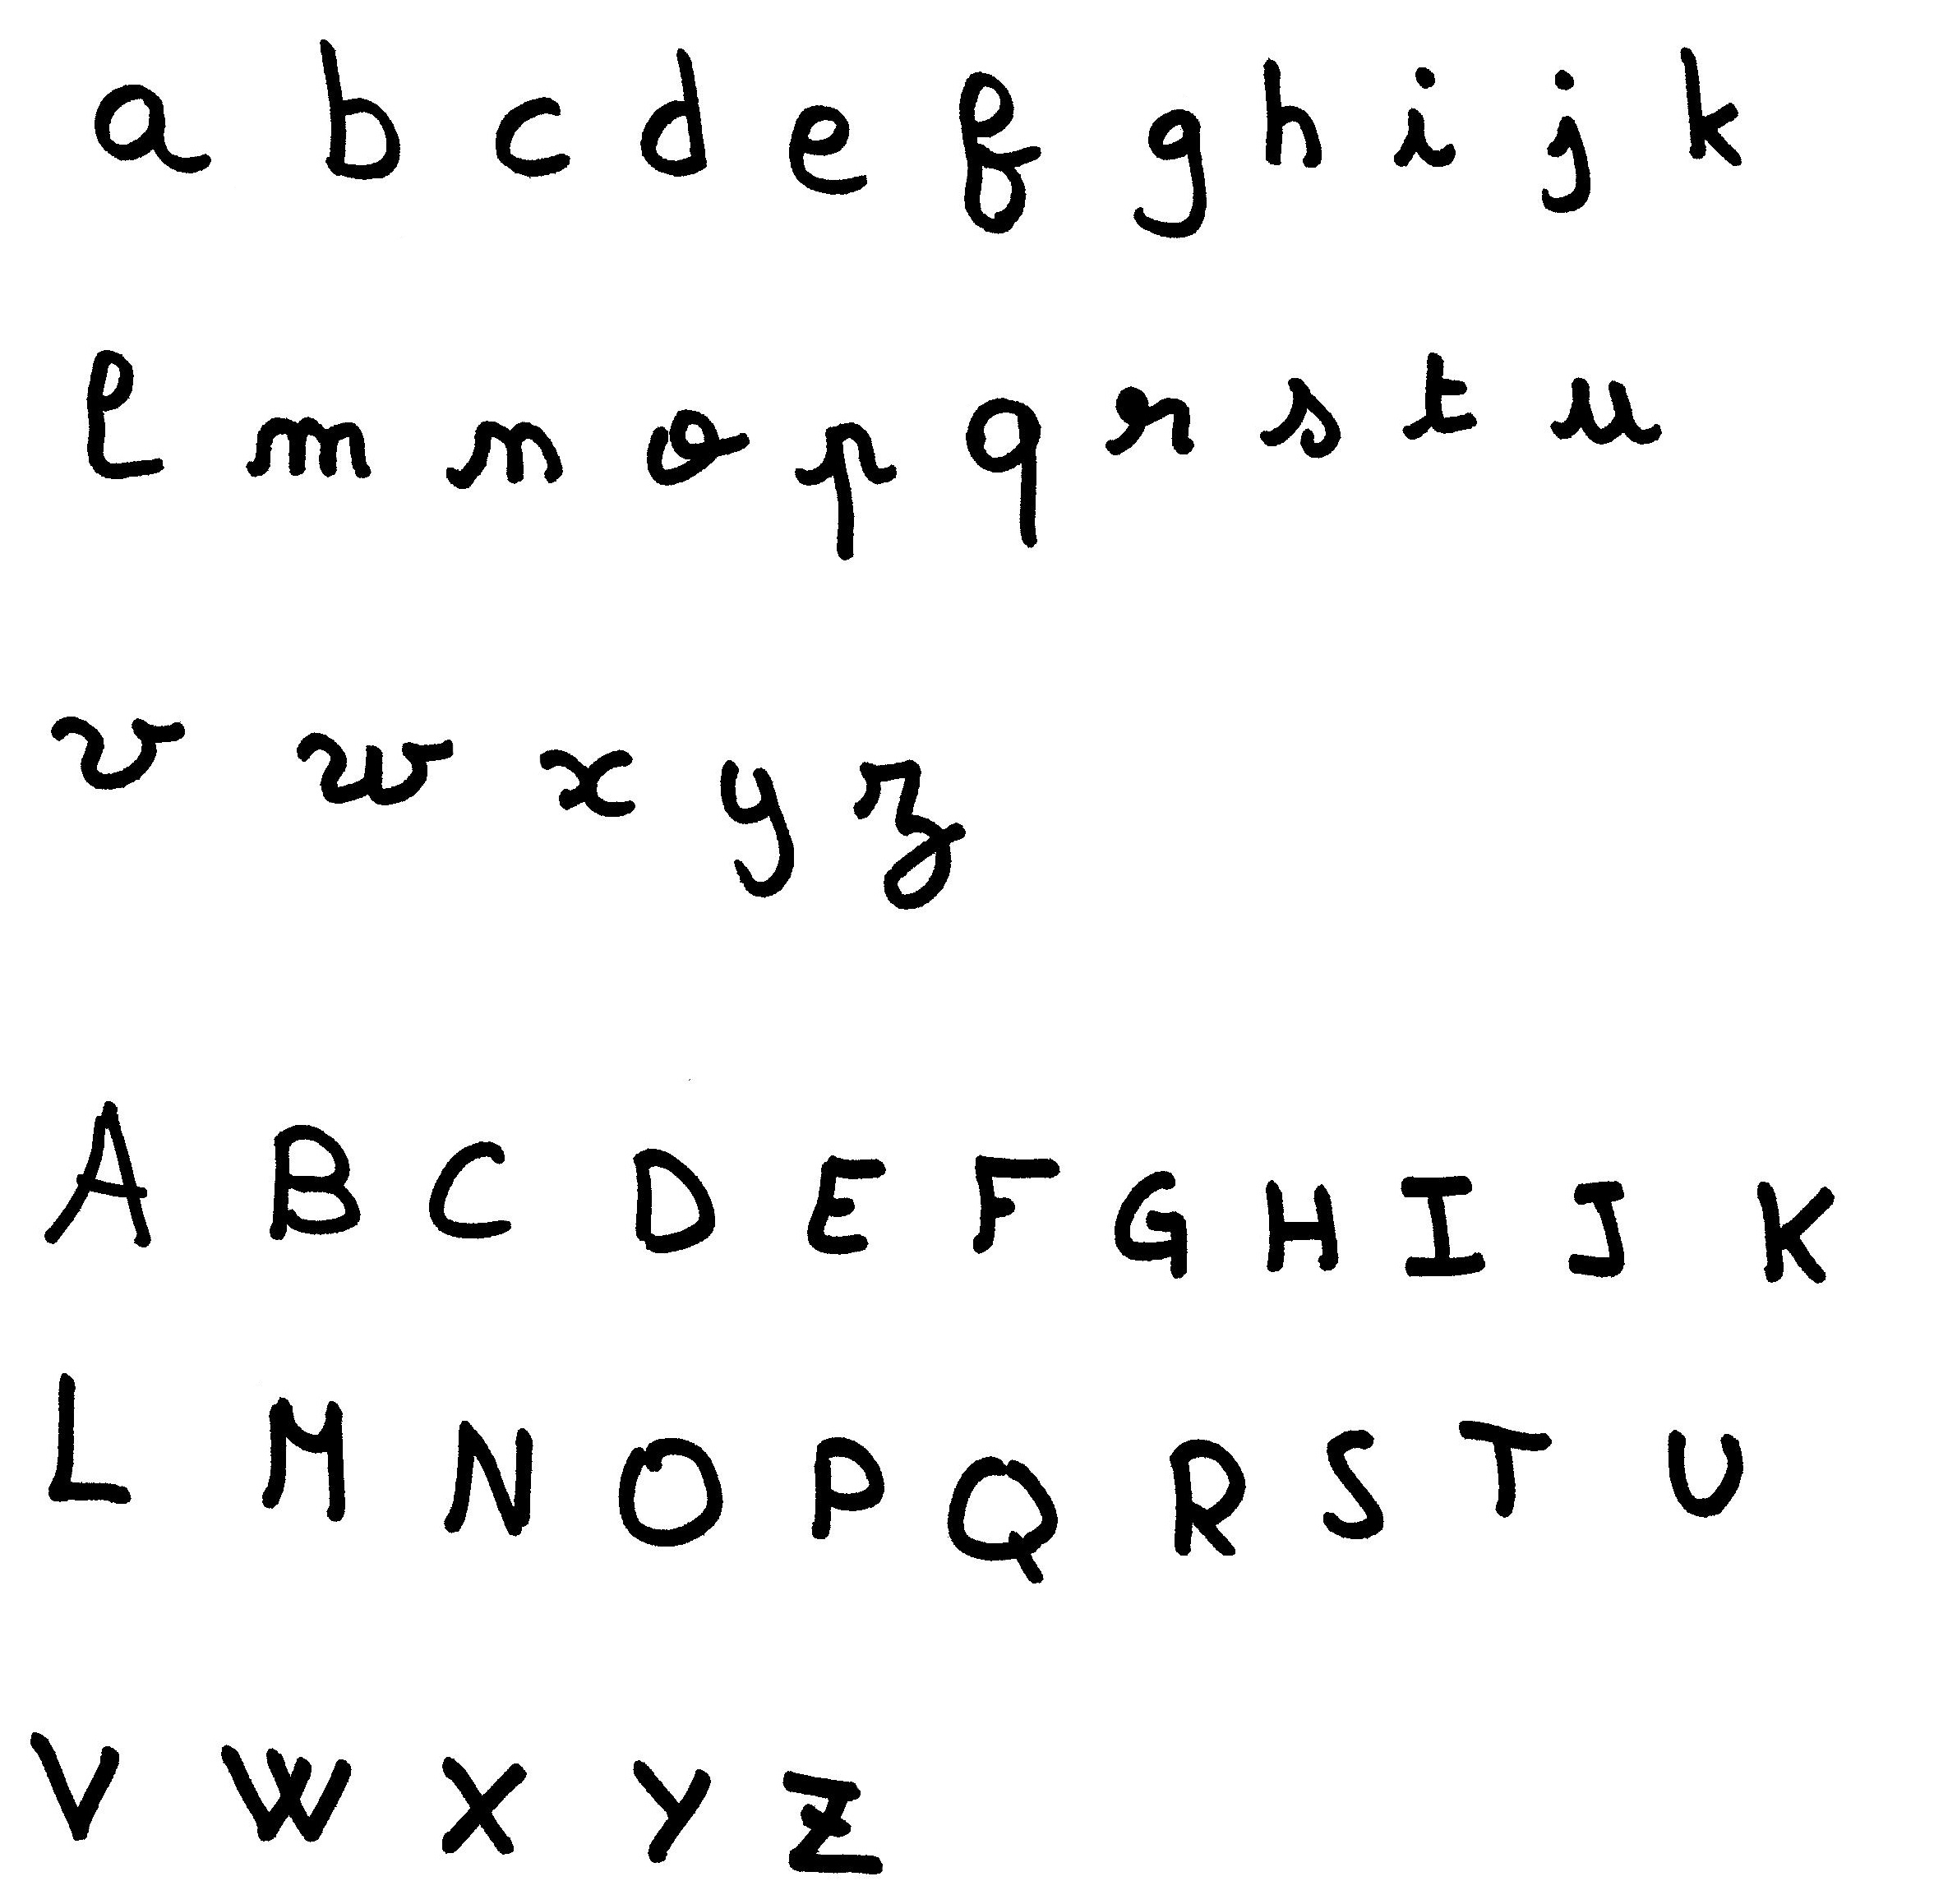 a b c d e f g h i j k
l m n o p q r s t u
v w x y z
A B C D E F G H I J K
L M N O P Q R S T U
V W X Y Z